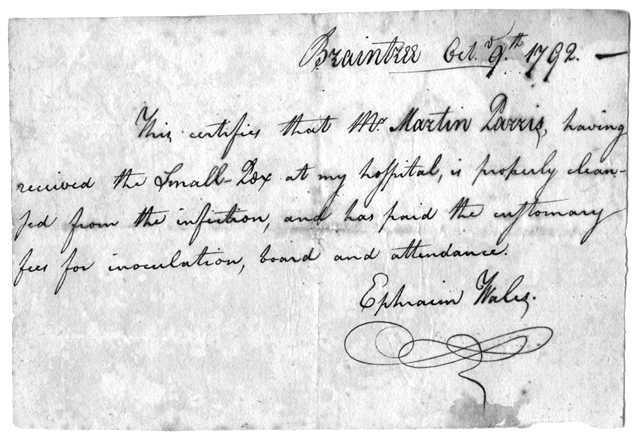 Braintree Oct. 9.th 1792. —
This certifies that Mr Martin Parris, having
received the Small-Pox at my hospital, is properly clean-
sed from the infection, and has paid the customary
fees for inoculation, board and attendance.
Ephraim Wales.